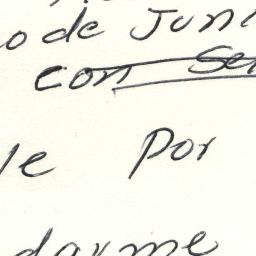 o de Juni
con Se
le por
darme